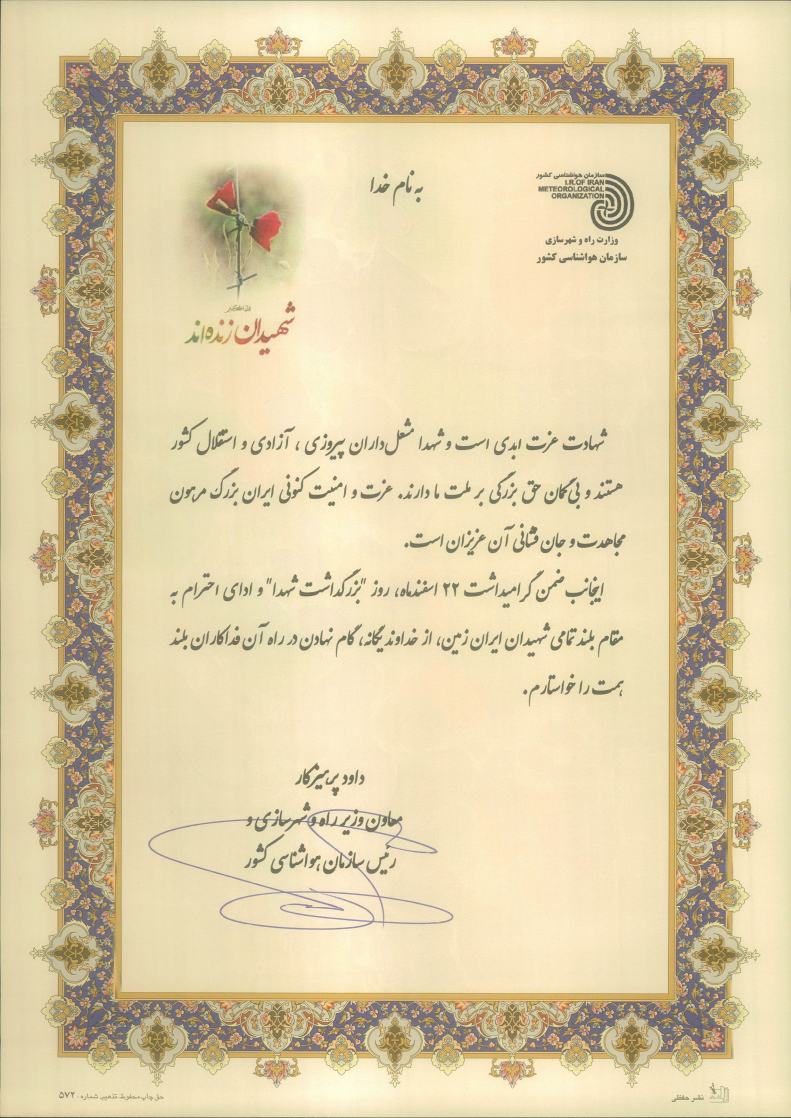 به نام خدا
سازمان هواشناسی کشور
I.R.OF IRAN
METEOROLOGICAL
ORGANIZATION
وزارت راه و شهرسازی
سازمان هواشناسی کشور
الله اکبر
شهیدان زنده‌اند
شهادت عزت ابدی است و شهدا مشعل‌داران پیروزی ، آزادی و استقلال کشور
هستند و بی‌گمان حق بزرگی بر ملت ما دارند. عزت و امنیت کنونی ایران بزرگ مرهون
مجاهدت و جان فشانی آن عزیزان است.
اینجانب ضمن گرامیداشت ۲۲ اسفندماه، روز "بزرگداشت شهدا" و ادای احترام به
مقام بلند تمامی شهیدان ایران زمین، از خداوند یگانه، گام نهادن در راه آن فداکاران بلند
همت را خواستارم.
داود پرهیزکار
معاون وزیر راه و شهرسازی و
رئیس سازمان هواشناسی کشور
حق چاپ محفوظ. تذهیب شماره: ۵۷۲
نشر حفظی